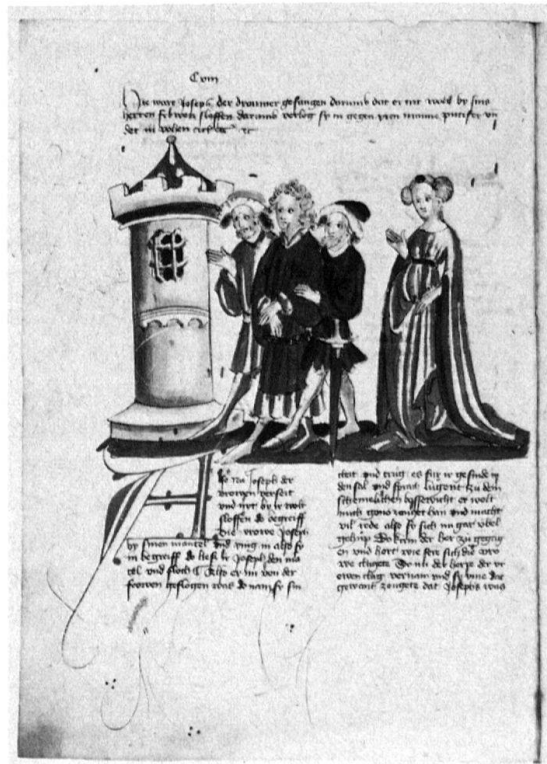 Cviii
Hie wart Joseph der droumer gefangen darumb dat er nit wold by sins
herren slossen darumb verlog sy in gegen yren manne putifer vn
det in
Do nu Joseph der
vrowen verseit
und nit by ir wolt
sloffen do begreiff
die vrowe Joseph
by sinen mantel vnd ving in also sy
in begreiff do liesz ir Joseph den ma
tel vnd floch Also er nu von der
frowen geflogen was do nam sy sin
cleit vnd trug es für ir gesinde in
den sal vnd sprach lugent zu dem
bosswicht er wolt
mich han vnd macht
vil rede also sy sich na gar übel
gehuip Do kem der her zu gegag
en vnd hort wie sere sich die vro
we clagete Do nu der herre der vr
owen clag vernam vnd sy yme die
gewant zougete dat Josephs was